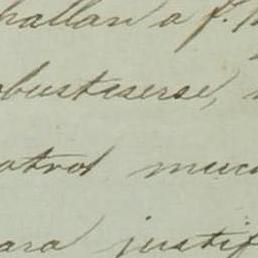 hallan a f.
robustecerse,
otros muc
para justif